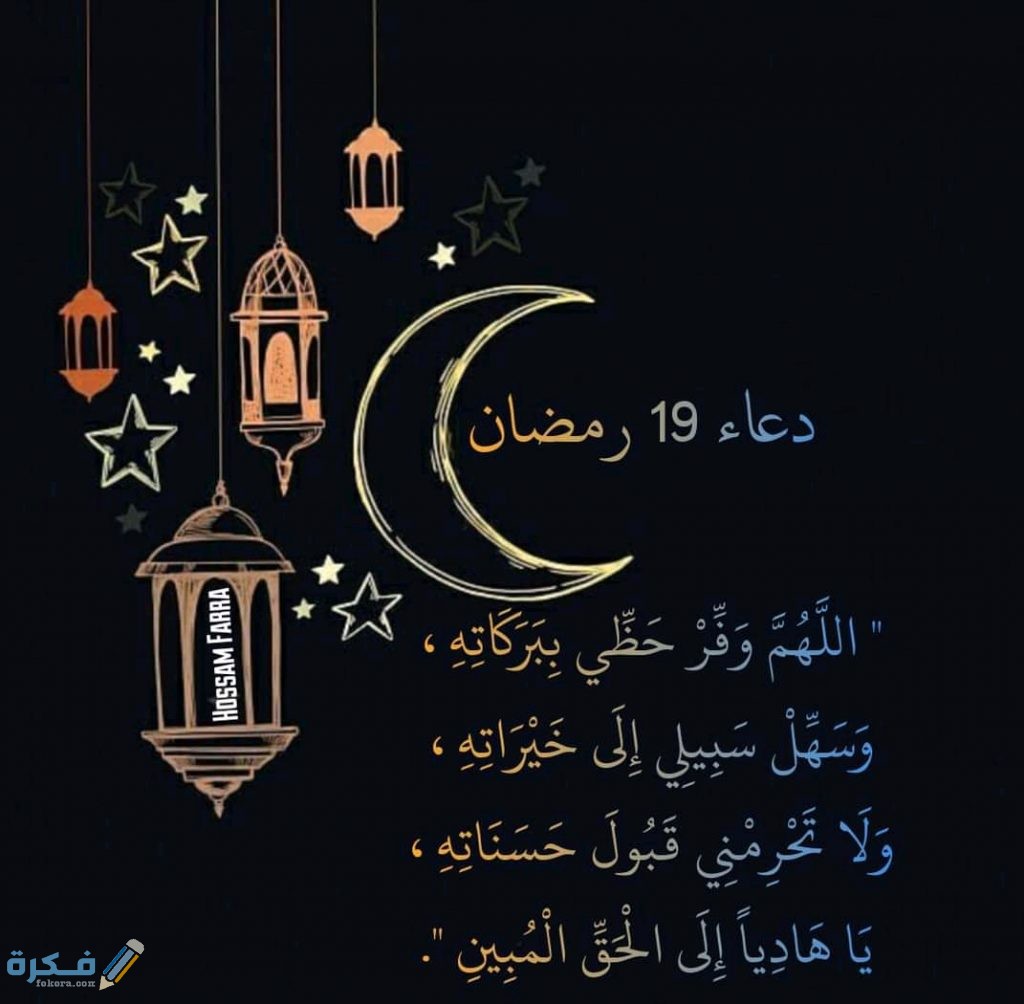 دعاء 19 رمضان
" اللَّهُمَّ وَفِّرْ حَظِّي بِبَرَكَاتِهِ ،
وَسَهِّلْ سَبِيلِي إِلَى خَيْرَاتِهِ ،
وَلَا تَحْرِمْنِي قَبُولَ حَسَنَاتِهِ ،
يَا هَادِياً إِلَى الْحَقِّ الْمُبِينِ ".
HOSSAM FARRA
فكرة
fekera.com